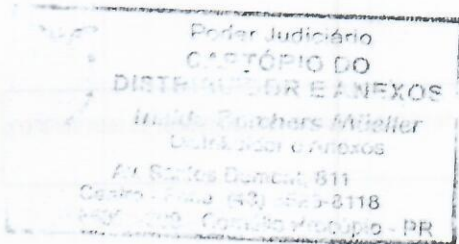 Poder Judiciário
CARTÓRIO DO
DISTRIBUIDOR E ANEXOS
Borchers Müeller
Distribuidor e Anexos
Av. Santos Dumont, 811
Centro - Fone (43) -8118
Cornélio Procópio - PR